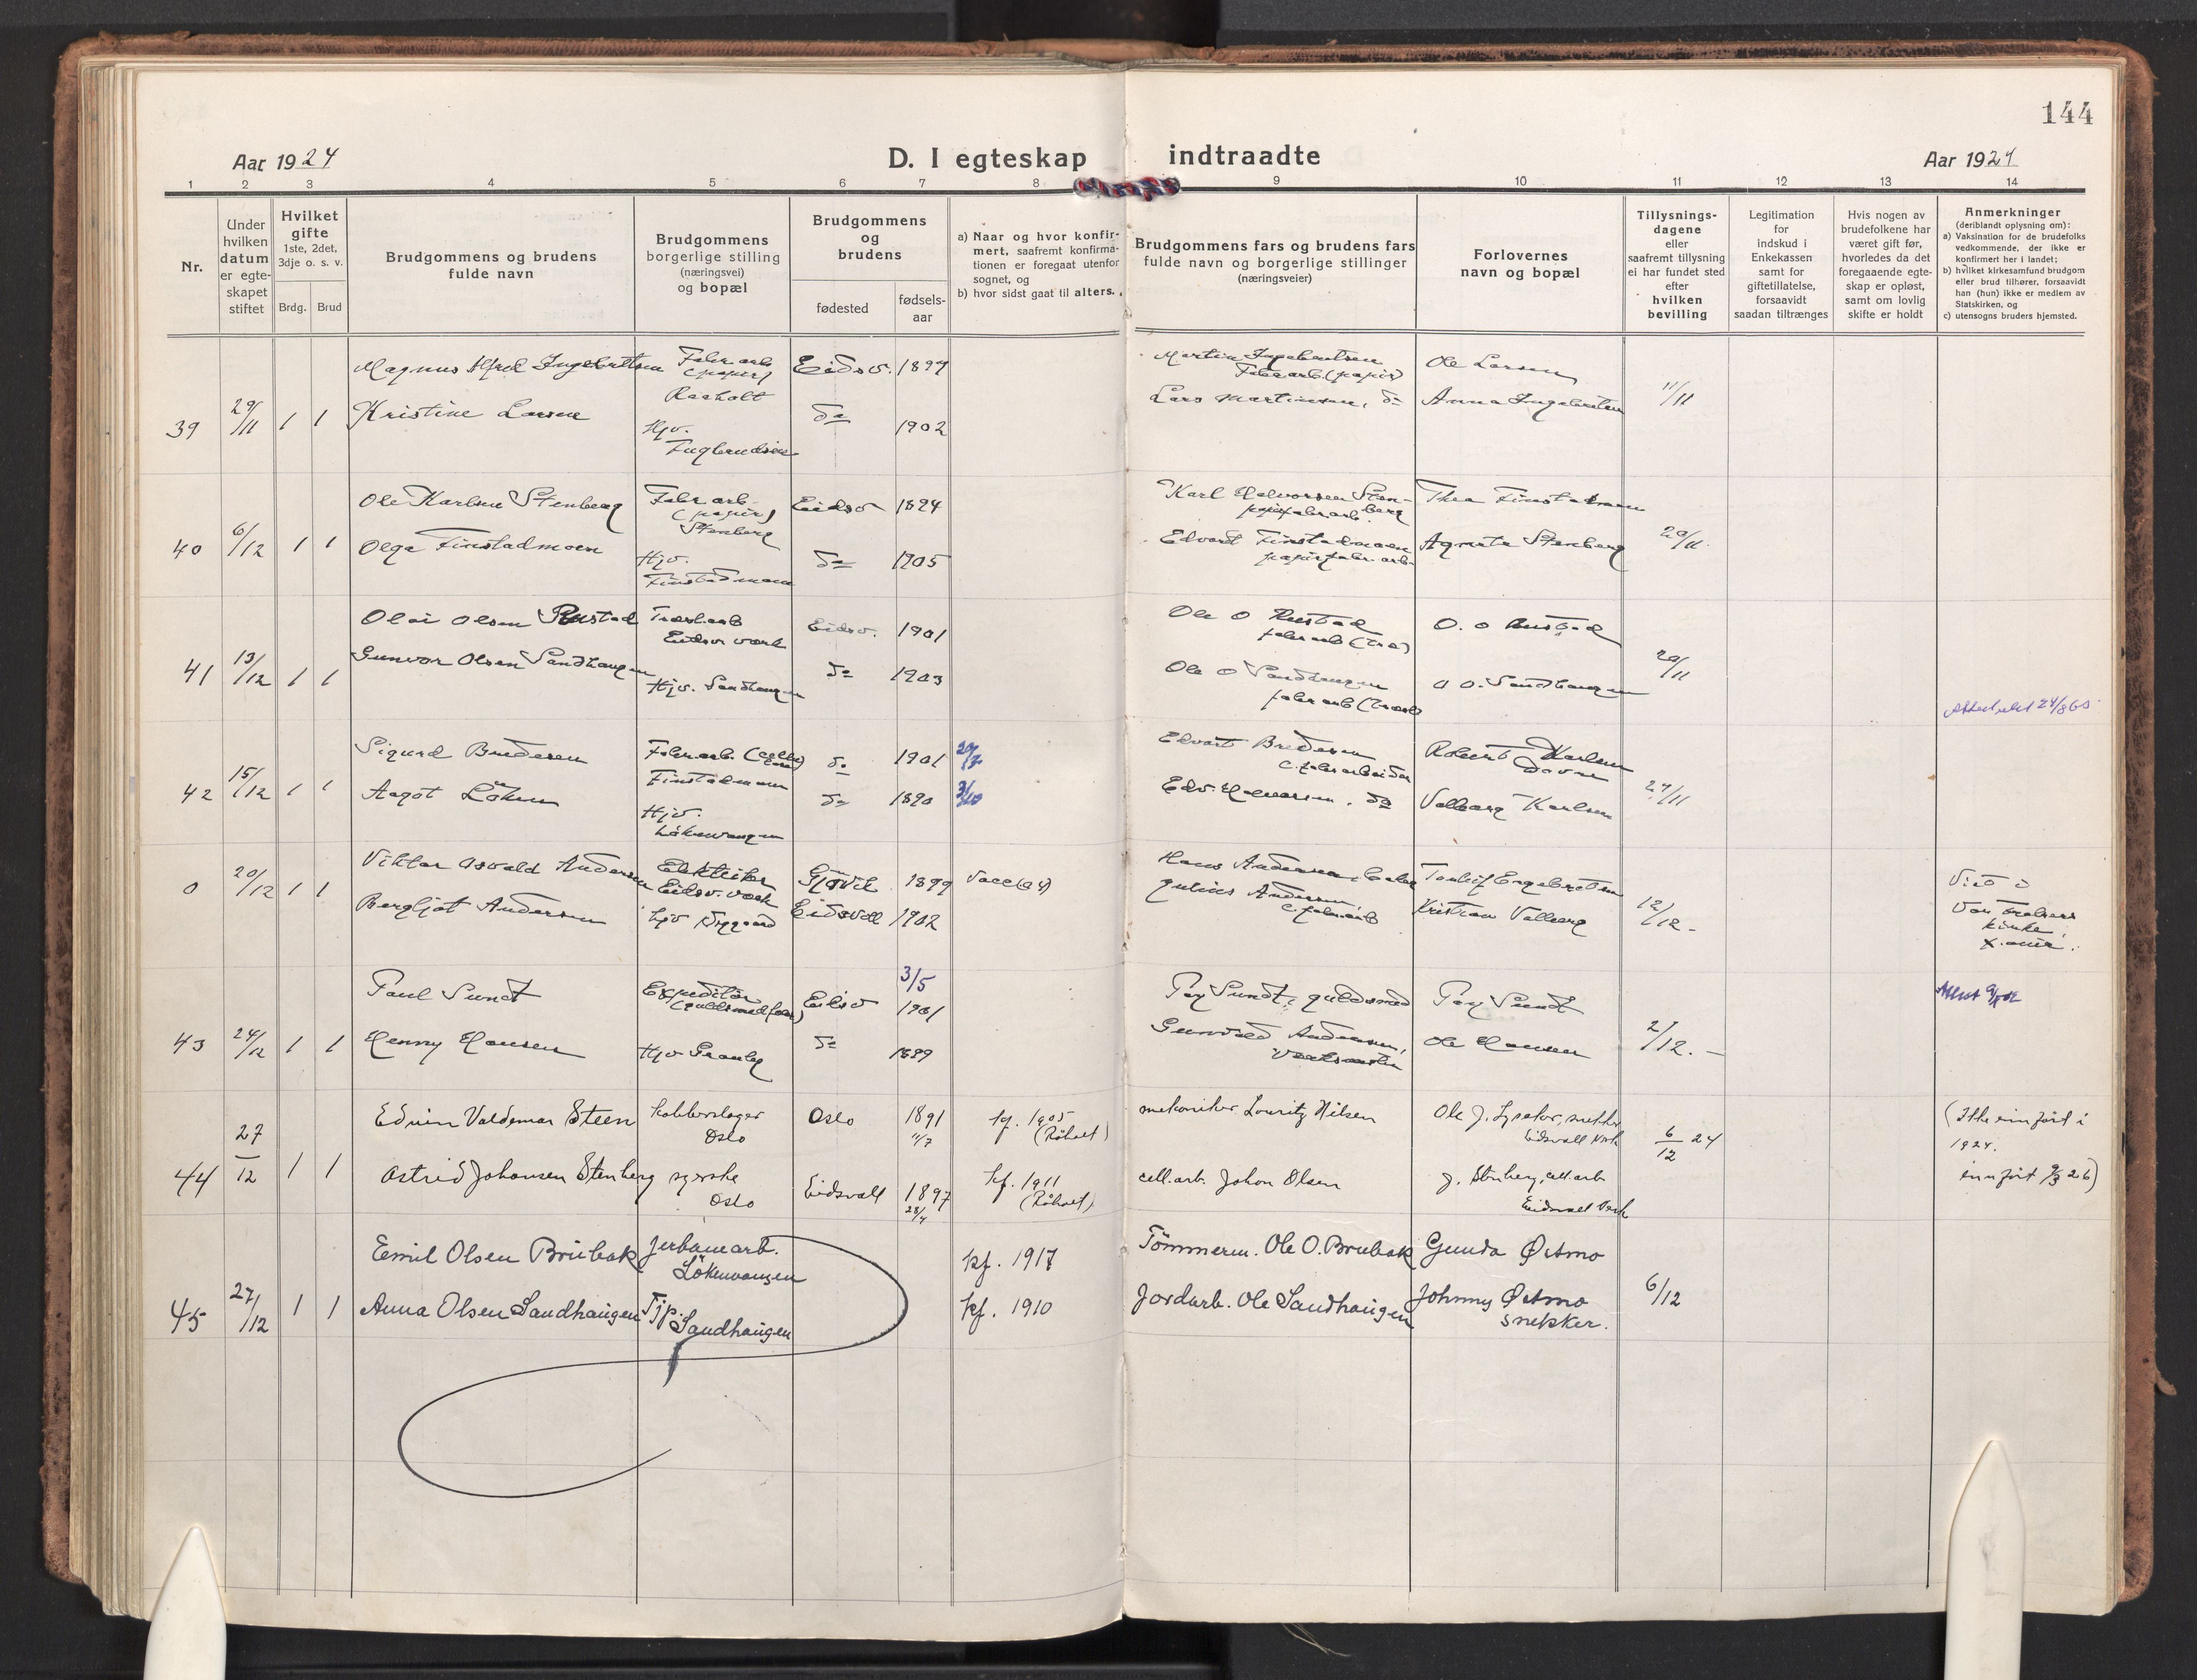 144
Aar 1924
D. I egteskap indtraadte
Aar 1924
1 2 3 4 5 6 7 8 9 10 11 12 13 14
Nr.
Under hvilken datum er egteskapet stiftet
Hvilket gifte
1ste, 2det, 3dje o. s. v.
Brdg. Brud
Brudgommens og brudens fulde navn
Brudgommens borgerlige stilling (næringsvei) og bopæl
Brudgommens og brudens
fødested
fødsels-aar
a) Naar og hvor konfir-
mert, saafremt konfirma-
tionen er foregaat utenfor
sognet, og
b) hvor sidst gaat til alters.
Brudgommens fars og brudens fars
fulde navn og borgerlige stillinger
(næringsveier)
Forlovernes
navn og bopæl
Tillysnings-
dagene
eller
saafremt tillysning
ei har fundet sted
efter
hvilken
bevilling
Legitimation
for
indskud i
Enkekassen
samt for
giftetillatelse,
forsaavidt
saadan tiltrænges
Hvis nogen av
brudefolkene har
været gift før,
hvorledes da det
foregaaende egte-
skap er opløst,
samt om lovlig
skifte er holdt
Anmerkninger
(deriblandt oplysning om):
a) Vaksination for de brudefolks
vedkommende, der ikke er
konfirmert her i landet;
b) hvilket kirkesamfund brudgom
eller brud tilhører, forsaavidt
han (hun) ikke er medlem av
Statskirken, og
c) utensogns bruders hjemsted.
Magnus Alfred Ingebretsen Fabr arb (papir) Eidsv. 1897 Martin Ingebretsen Fabr arb (papir) Ole Larsen
Raaholt
39 29/11 1 1 Kristine Larsen Hjv. do 1902 Lars Martinsen, do Anna Ingebretsen 11/11
Ole Karlsen Stenberg Fabr arb (papir) Stenberg Eidsv 1824 Karl Halvorsen Stenberg papirfabr.arb. Thea Finstadmoen
40 6/12 1 1 Olga Finstadmoen Hjv. Finstadmoen do 1905 Edvard Finstadmoen papirfabr. arb. Agnete Stenberg 20/11
Olai Olsen Rustad Træsl.arb Eidsv. værk Eidsv. 1901 Ole O Rustad fabr arb (træ) O. O Rustad
41 13/12 1 1 Gunvor Olsen Sandhaugen Hjv. Sandhaugen do 1903 Ole O Sandhaugen fabr arb (træsl) O O. Sandhaugen 20/11
Attest utst 24/8 60
Sigurd Bredesen Fabr.arb. (cellulose) Finstadmoen do 1901 Edvart Bredesen C. fabr arbeider Robert Karlsen
42 15/12 1 1 Aagot Löken Hjv. Lökenvangen do 1890 Edv. Halvorsen, do Valborg Karlsen 27/11
Viktor Osvald Andersen Elektriker Eidsv. værk Gjövik 1899 Vacc Hans Andersen Engebretsen
0 20/12 1 1 Bergljot Andersen hjv Nygaard Eidsvoll 1902 Julius Andersen C. fabr. arb Kristian Valberg 12/12 -
Viet i
Vor Frelsers
kirke,
Paul Sundt Expeditör Eidsv 3/5 1901 Pay Sundt, guldsmed Pay Sundt
43 24/12 1 1 Henny Hansen Hjv Granby do 1899 Gunvald Andersen, Ole Hansen 2/12. -
Attest
Edvin Valdemar Steen kobberslager Oslo Oslo 1891 11/7 kf. 1905 (Råholt) mekaniker Lauritz Nilsen Ole J. snekker Eidsvoll Verk 6/12 24
44 27/12 1 1 Astrid Johansen Stenberg syerske Oslo Eidsvoll 1897 28/4 kf. 1911 (Råholt) cell.arb. Johan Olsen J. Stenberg, cell.arb Eidsvoll Verk
(Ikke innført i
1924.
innført 9/3 26)
Emil Olsen Brubak Jerbanearb. Lökenvangen kf. 1917 Tömmerm. Ole O. Brubak Gunda Østmo
45 27/12 1 1 Anna Olsen Sandhaugen Tjp. Sandhaugen kf. 1910 Jordarb. Ole Sandhaugen Johnny Østmo snekker. 6/12